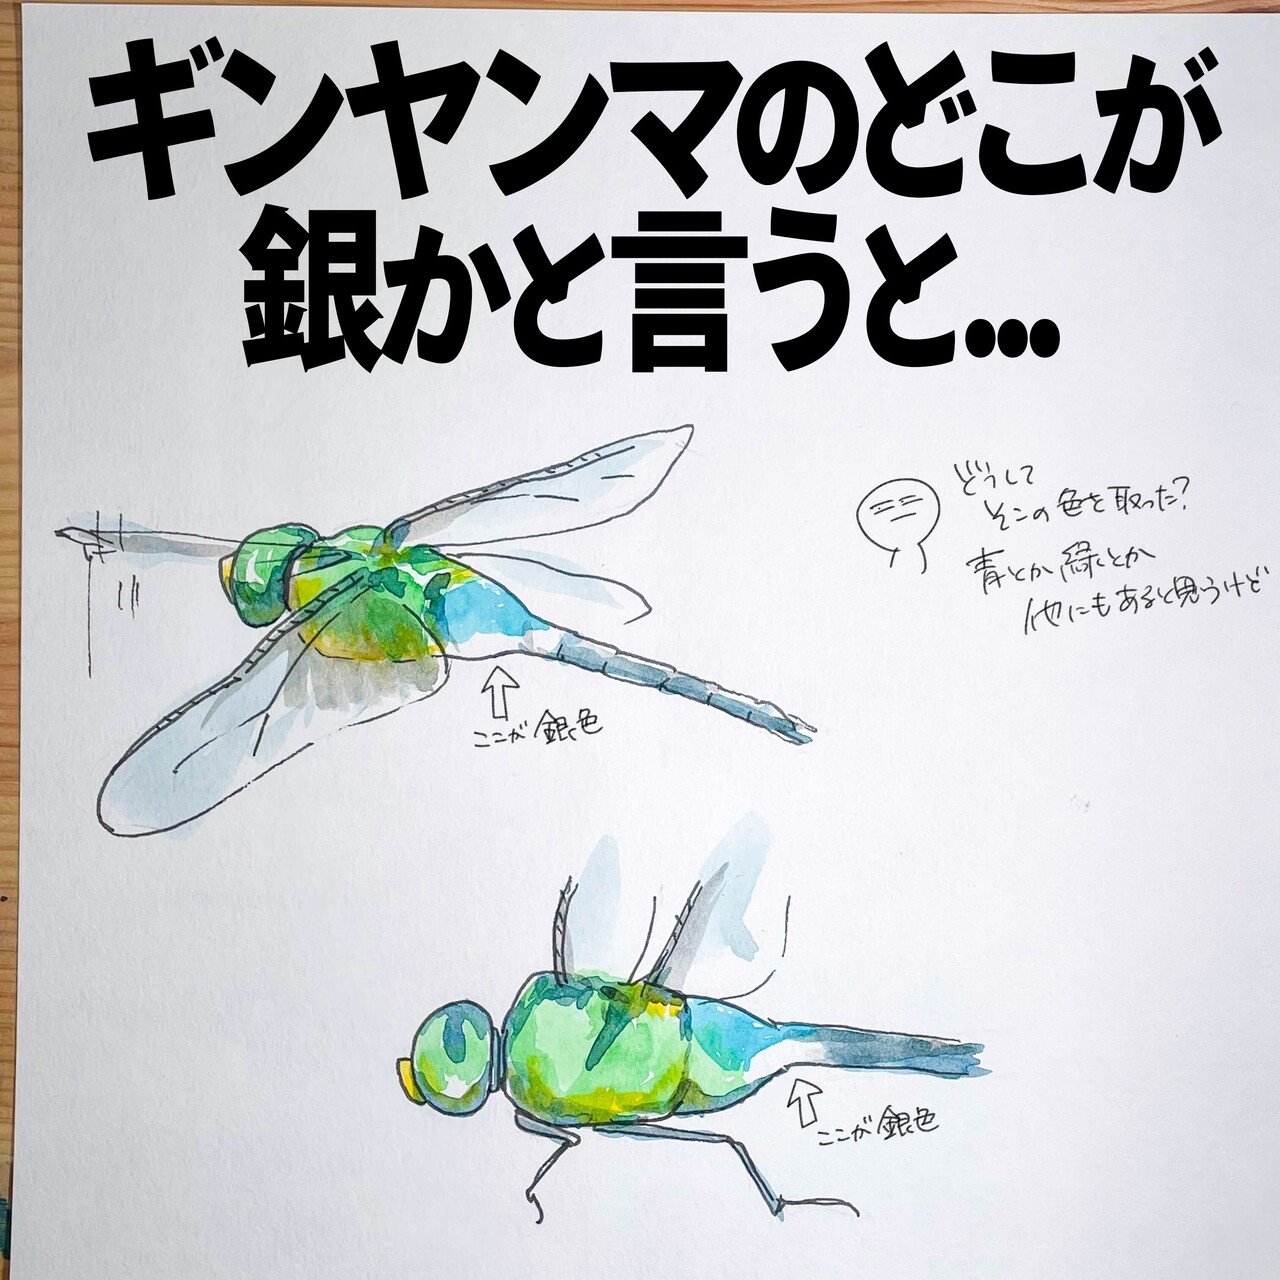 ギンヤンマのどこが
銀かと言うと...
どうして
そこの色を取った?
青とか緑とか
他にもあると思うけど
ここが銀色
ここが銀色